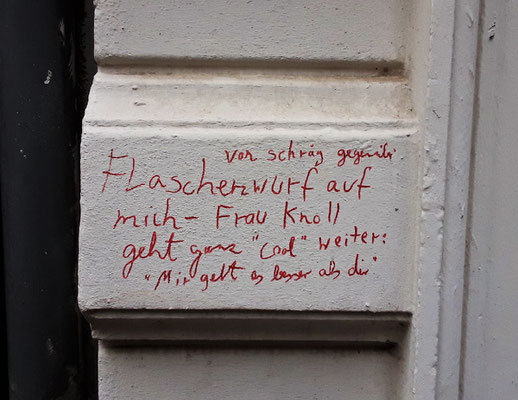 von schräg gegenüber
Flaschenwurf auf
mich - Frau Knoll
geht ganz "cool" weiter:
"Mir geht es besser als dir"